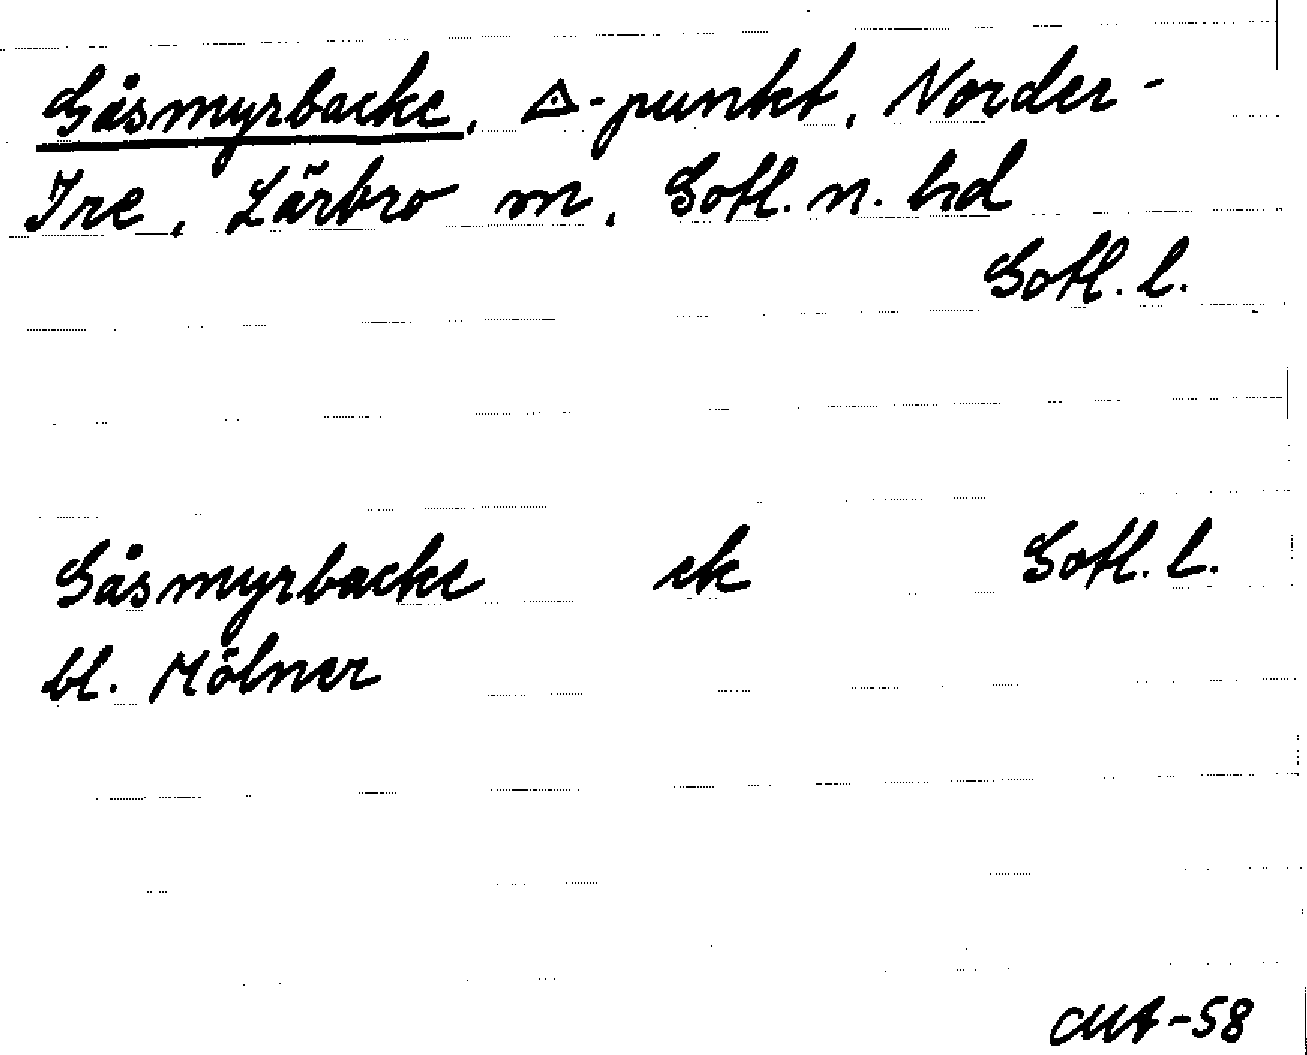 Gåsmyrbacke, △-punkt, Norder-
Ire, Lärbro sn, Gotl. n. hd
Gotl. l.
Gåsmyrbacke ek Gotl. l.
bl. Mölner
-58